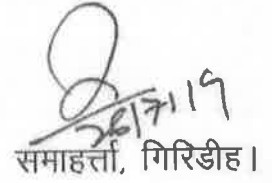 26/7/19
समाहर्त्ता, गिरिडीह।